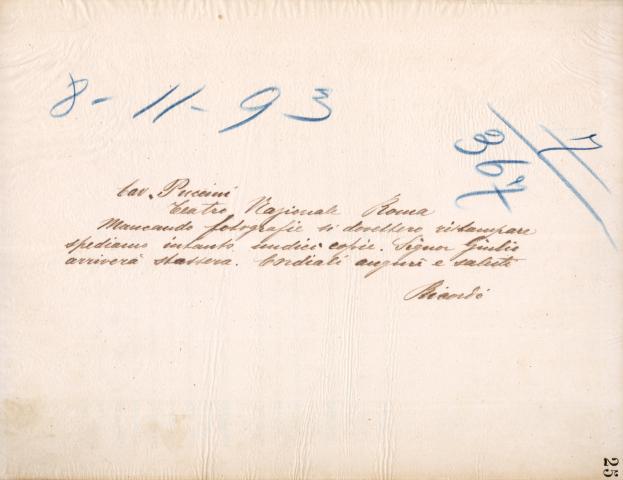 8-11-93
7/367
Cav. Puccini
Teatro Nazionale Roma
Mancando fotografie si dovettero ristampare
spediamo intanto undici copie. Signor Giulio
arriverà stassera. Cordiali auguri e saluti
Ricordi
25